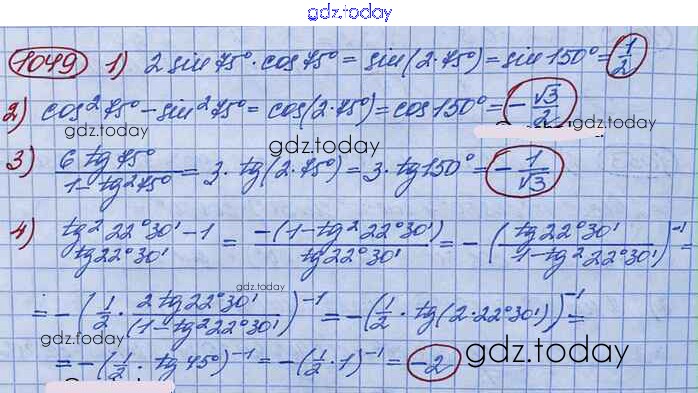 gdz.today
1049 1) 2 sin 75° · cos 75° = sin(2·75°) = sin 150° = 1/2
2) cos² 75° − sin² 75° = cos(2·75°) = cos 150° = −√3/2
gdz.today
gdz.today
3) 6 tg 75° / 1 − tg² 75° = 3 · tg(2·75°) = 3 · tg 150° = −1/√3
gdz.today
4) tg² 22°30' − 1 / tg 22°30' = −(1 − tg² 22°30') / tg 22°30' = −(tg 22°30' / 1 − tg² 22°30')⁻¹ =
gdz.today
= −(1/2 · 2 tg 22°30' / (1 − tg² 22°30'))⁻¹ = −(1/2 · tg(2·22°30'))⁻¹ =
gdz.today
= −(1/2 · tg 45°)⁻¹ = −(1/2 · 1)⁻¹ = −2
gdz.today